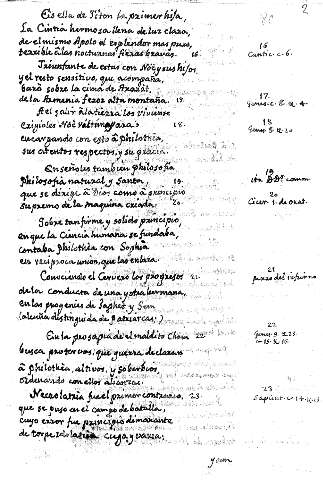 2
Cis ella de Titon la primer hija,
La Cintia hermosa llena de luz clara,
de el mismo Apolo el esplendor mas puro,
terrible à las nocturnas fieras bravas. 16.
16
Cantic. c. 6.
Triunfante de estas con Noè y sus hijos
y el resto sensitivo, que acompaña,
parò sobre la cima de Ararat,
de la Armenia feroz alta montaña. 17
17
Genes. c. 8. v. 4
A el salir à la tierra los viviente
Noè 18.
18
Genes. 8. v. 20
encargando con esto à Philothia,
sus atentos respectos, y su gracia.
Enseñoles tambien Philosofia
Philosofia natural, y Santa, 19
19
que se dirige à Dios como à principio
supremo de la maquina criada. 20
20
Cicer. 1. de orat.
Sobre tan firme y solido principio
en que la Ciencia humana se fundaba,
contaba Philothia con Sophia
en reciproca union, que las enlaza.
Conociendo el Cervero los progresos 21
21
de la conducta de una y otra hermana,
en las progenies de Japhet y Sem
(alcuña distinguida de Patriarcas.)
En la prosapia de el maldito Cham 22
22
Genes. 9. v. 25
busca protervos, que guerra declaran
à Philothia, altivos, y soberbios,
ordenando con ellos alianza.
Necrolatria fue el primer contrario, 23
23
Sapient. c. 14. v. 15
que se puso en el campo de batalla,
cuyo error fue principio dimanante
de torpe Idolatria ciega, y varia: